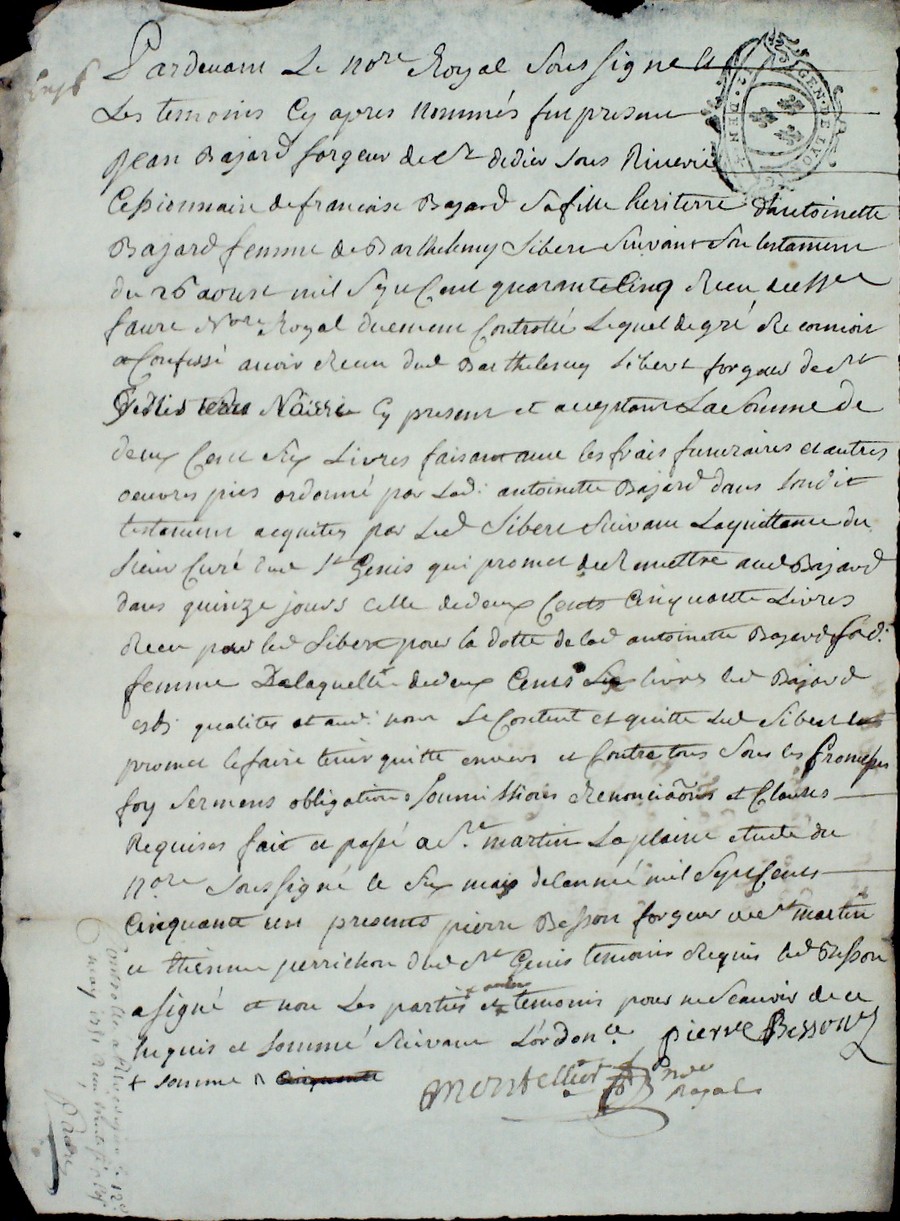 Pardevant Le no.re Royal Soussigné et
Les temoins Cy apres Nommés fut present
Jean Bajard forgeur de St didier Sous Riverie
Cessionnaire de francoise Bajard Sa fille heritiere d'antoinette
Bajard femme de Barthelemy Sibert Suivant Son testament
du 26 aoust mil Sept Cent quarante Cinq Receu
faure No.re Royal duement Controllé Lequel de gré Reconnoit
et Confessé avoir Receu dud Barthelemy Sibert forgeur de St
Cy present et acceptant La Somme de
deux Cent Six Livres faisant avec les frais funeraires et autres
oeuvres pies ordonné par Lad: antoinette Bajard dans Sondit
testament acquites par Led Sibert Suivant La quittance du
Sieur Curé dud St Genis qui promet de Remettre aud Bajard
dans quinze jours celle de deux Cents Cinquante Livres
Receu par led Sibert pour la dotte de lad antoinette Bajard Sad:
femme De laquelle de deux Cents Six livres led Bajard
esd: qualites et aud: nom Se Content et quitte Led Sibert et
promet le faire tenir quitte envers et Contre tous Sous les promesses
foy Sermens obligations Soumissions Renonciaôns et Clauses
Requises fait et passé a St. martin La plaine etude du
no.re Soussigné le Six may de lannée mil Sept Cents
Cinquante un presents pierre Besson forgeur de St martin
et Etienne perrichon dud St Genis temoins Requis led Besson
a Signé et non Les parties et autre temoins pour ne Scavoir de ce
Requis et Sommé Suivant L'ordon.ce pierre Besson
+ somme R Cinquante
Montellier no.re
Royal
Controllé a Riverie le 12e
may 1751 Receu